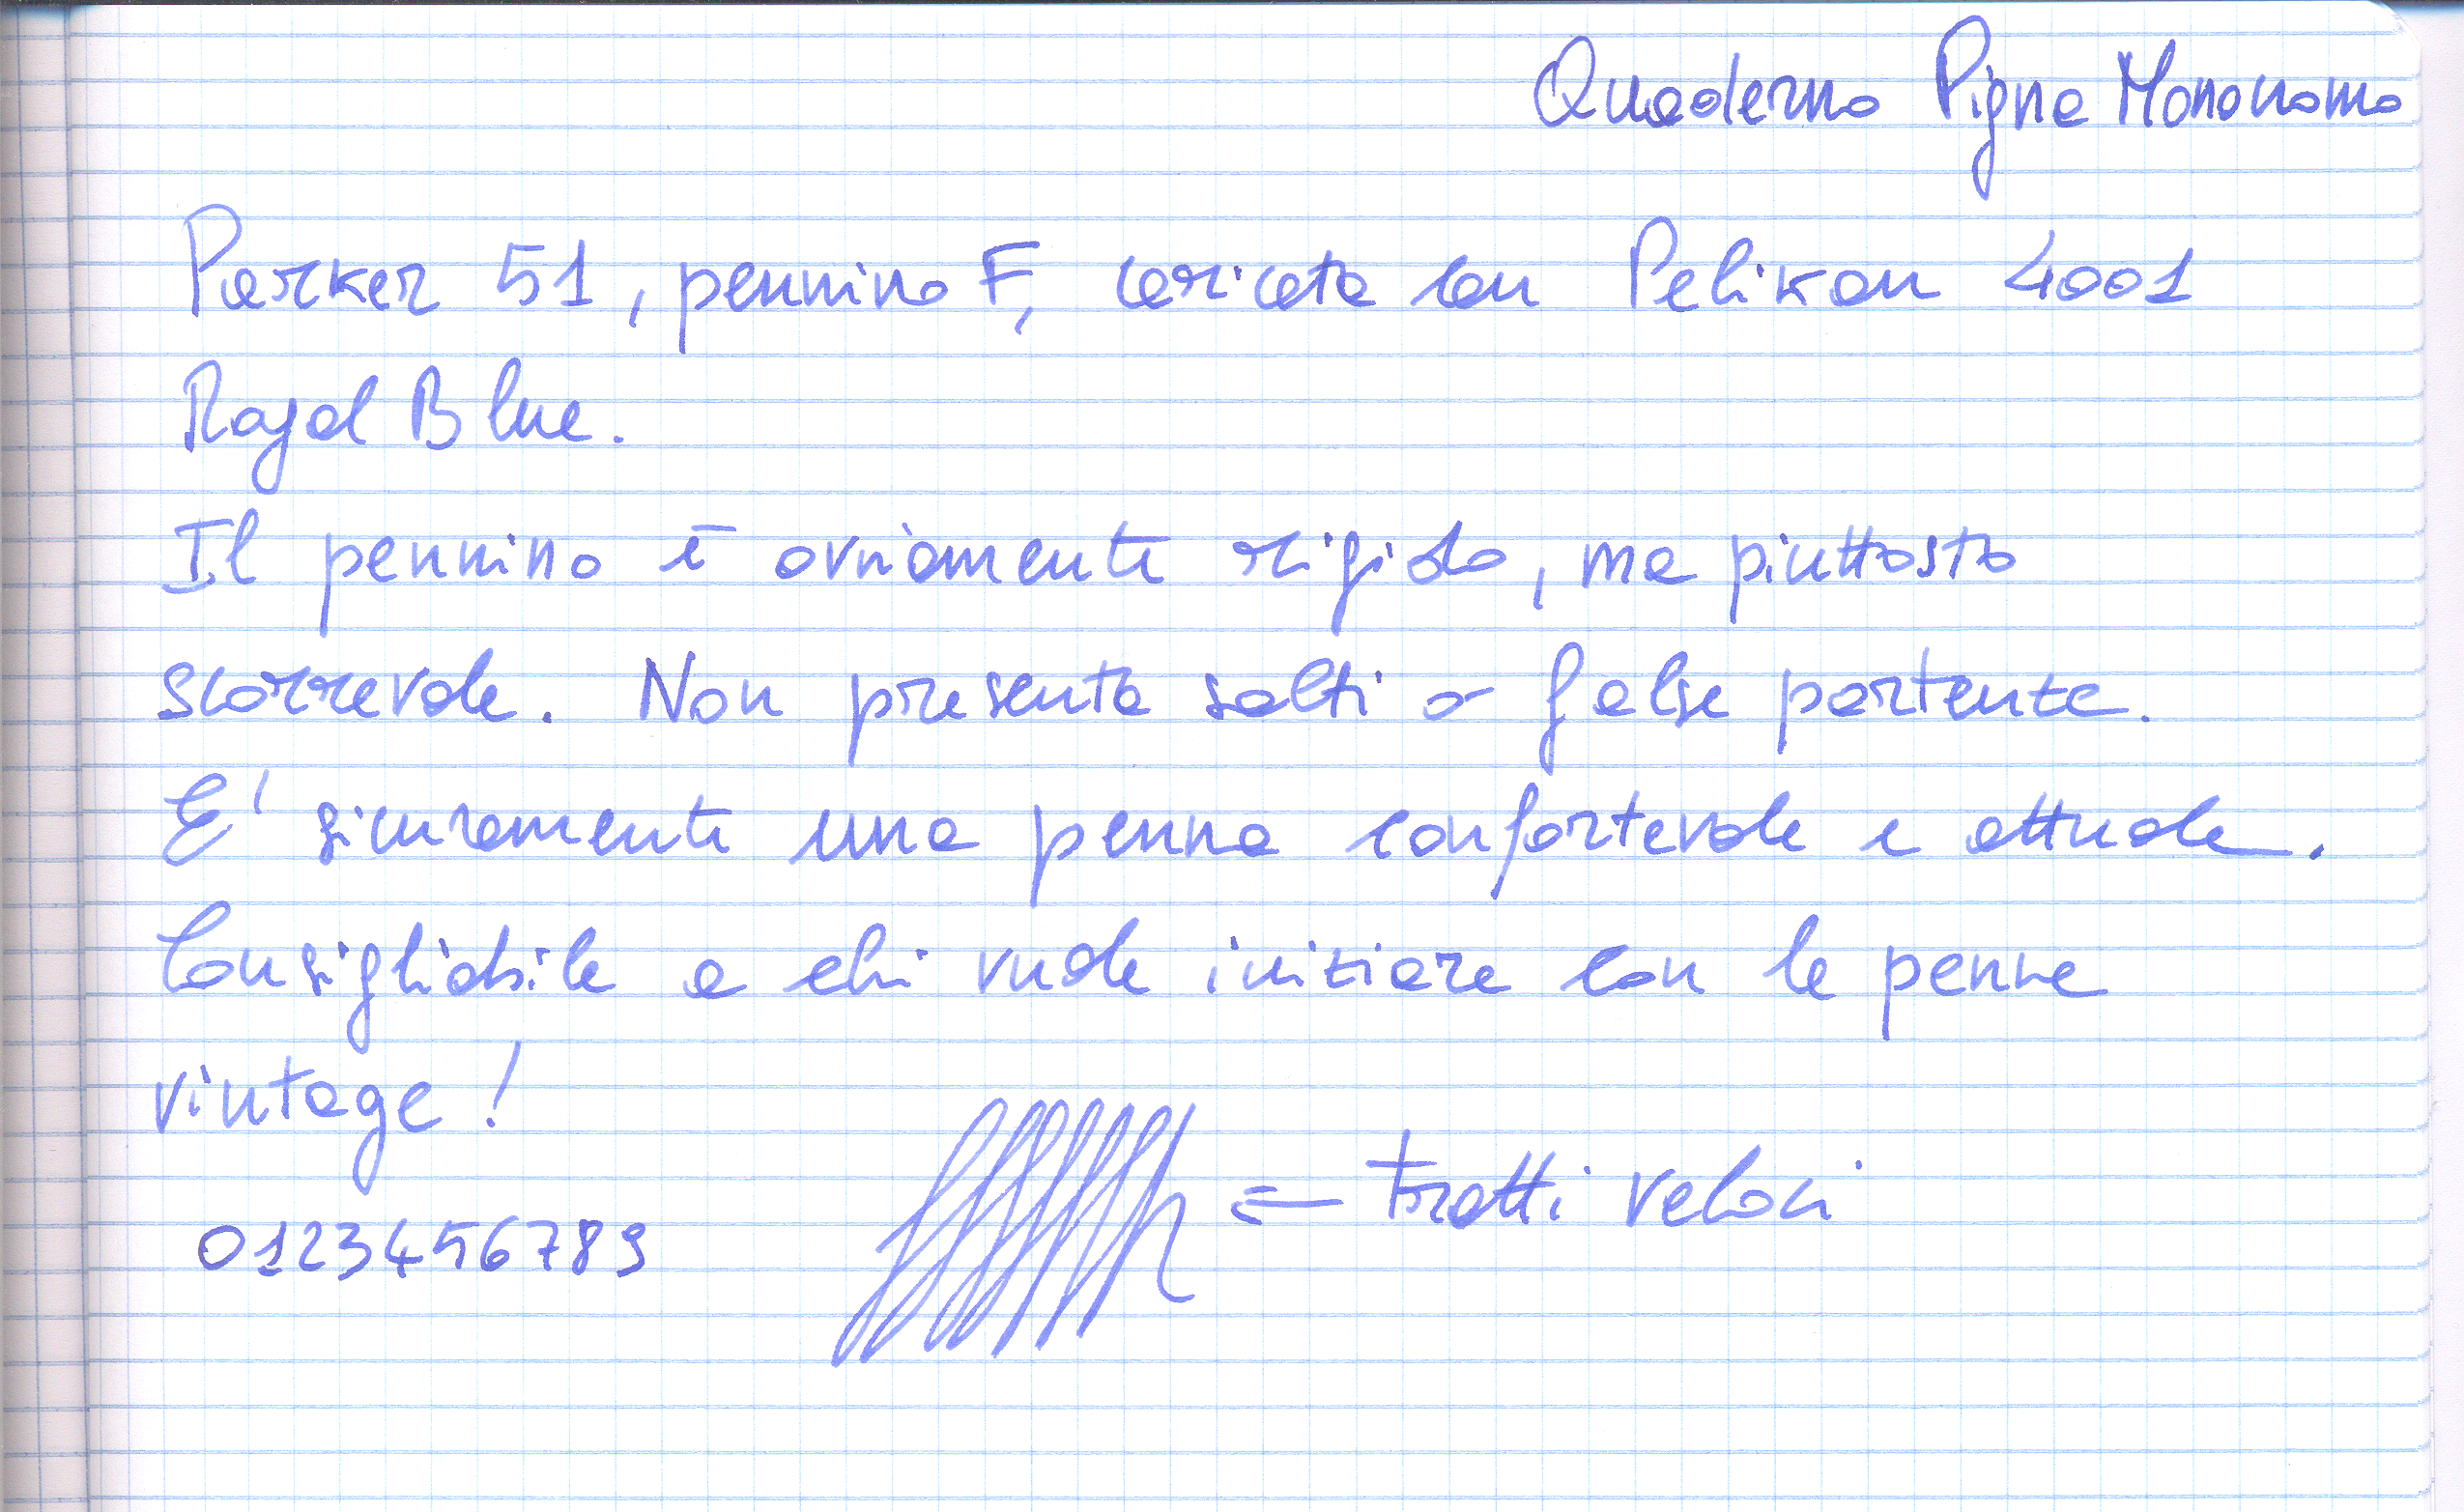 Quaderno Pigna Monocromo
Parker 51, pennino F, caricata con Pelikan 4001
Royal Blue.
Il pennino è ovviamente rigido, ma piuttosto
scorrevole. Non presenta salti o false partenze.
E' sicuramente una penna confortevole e attuale.
Consigliabile a chi vuole iniziare con le penne
vintage!
0123456789
<= tratti veloci